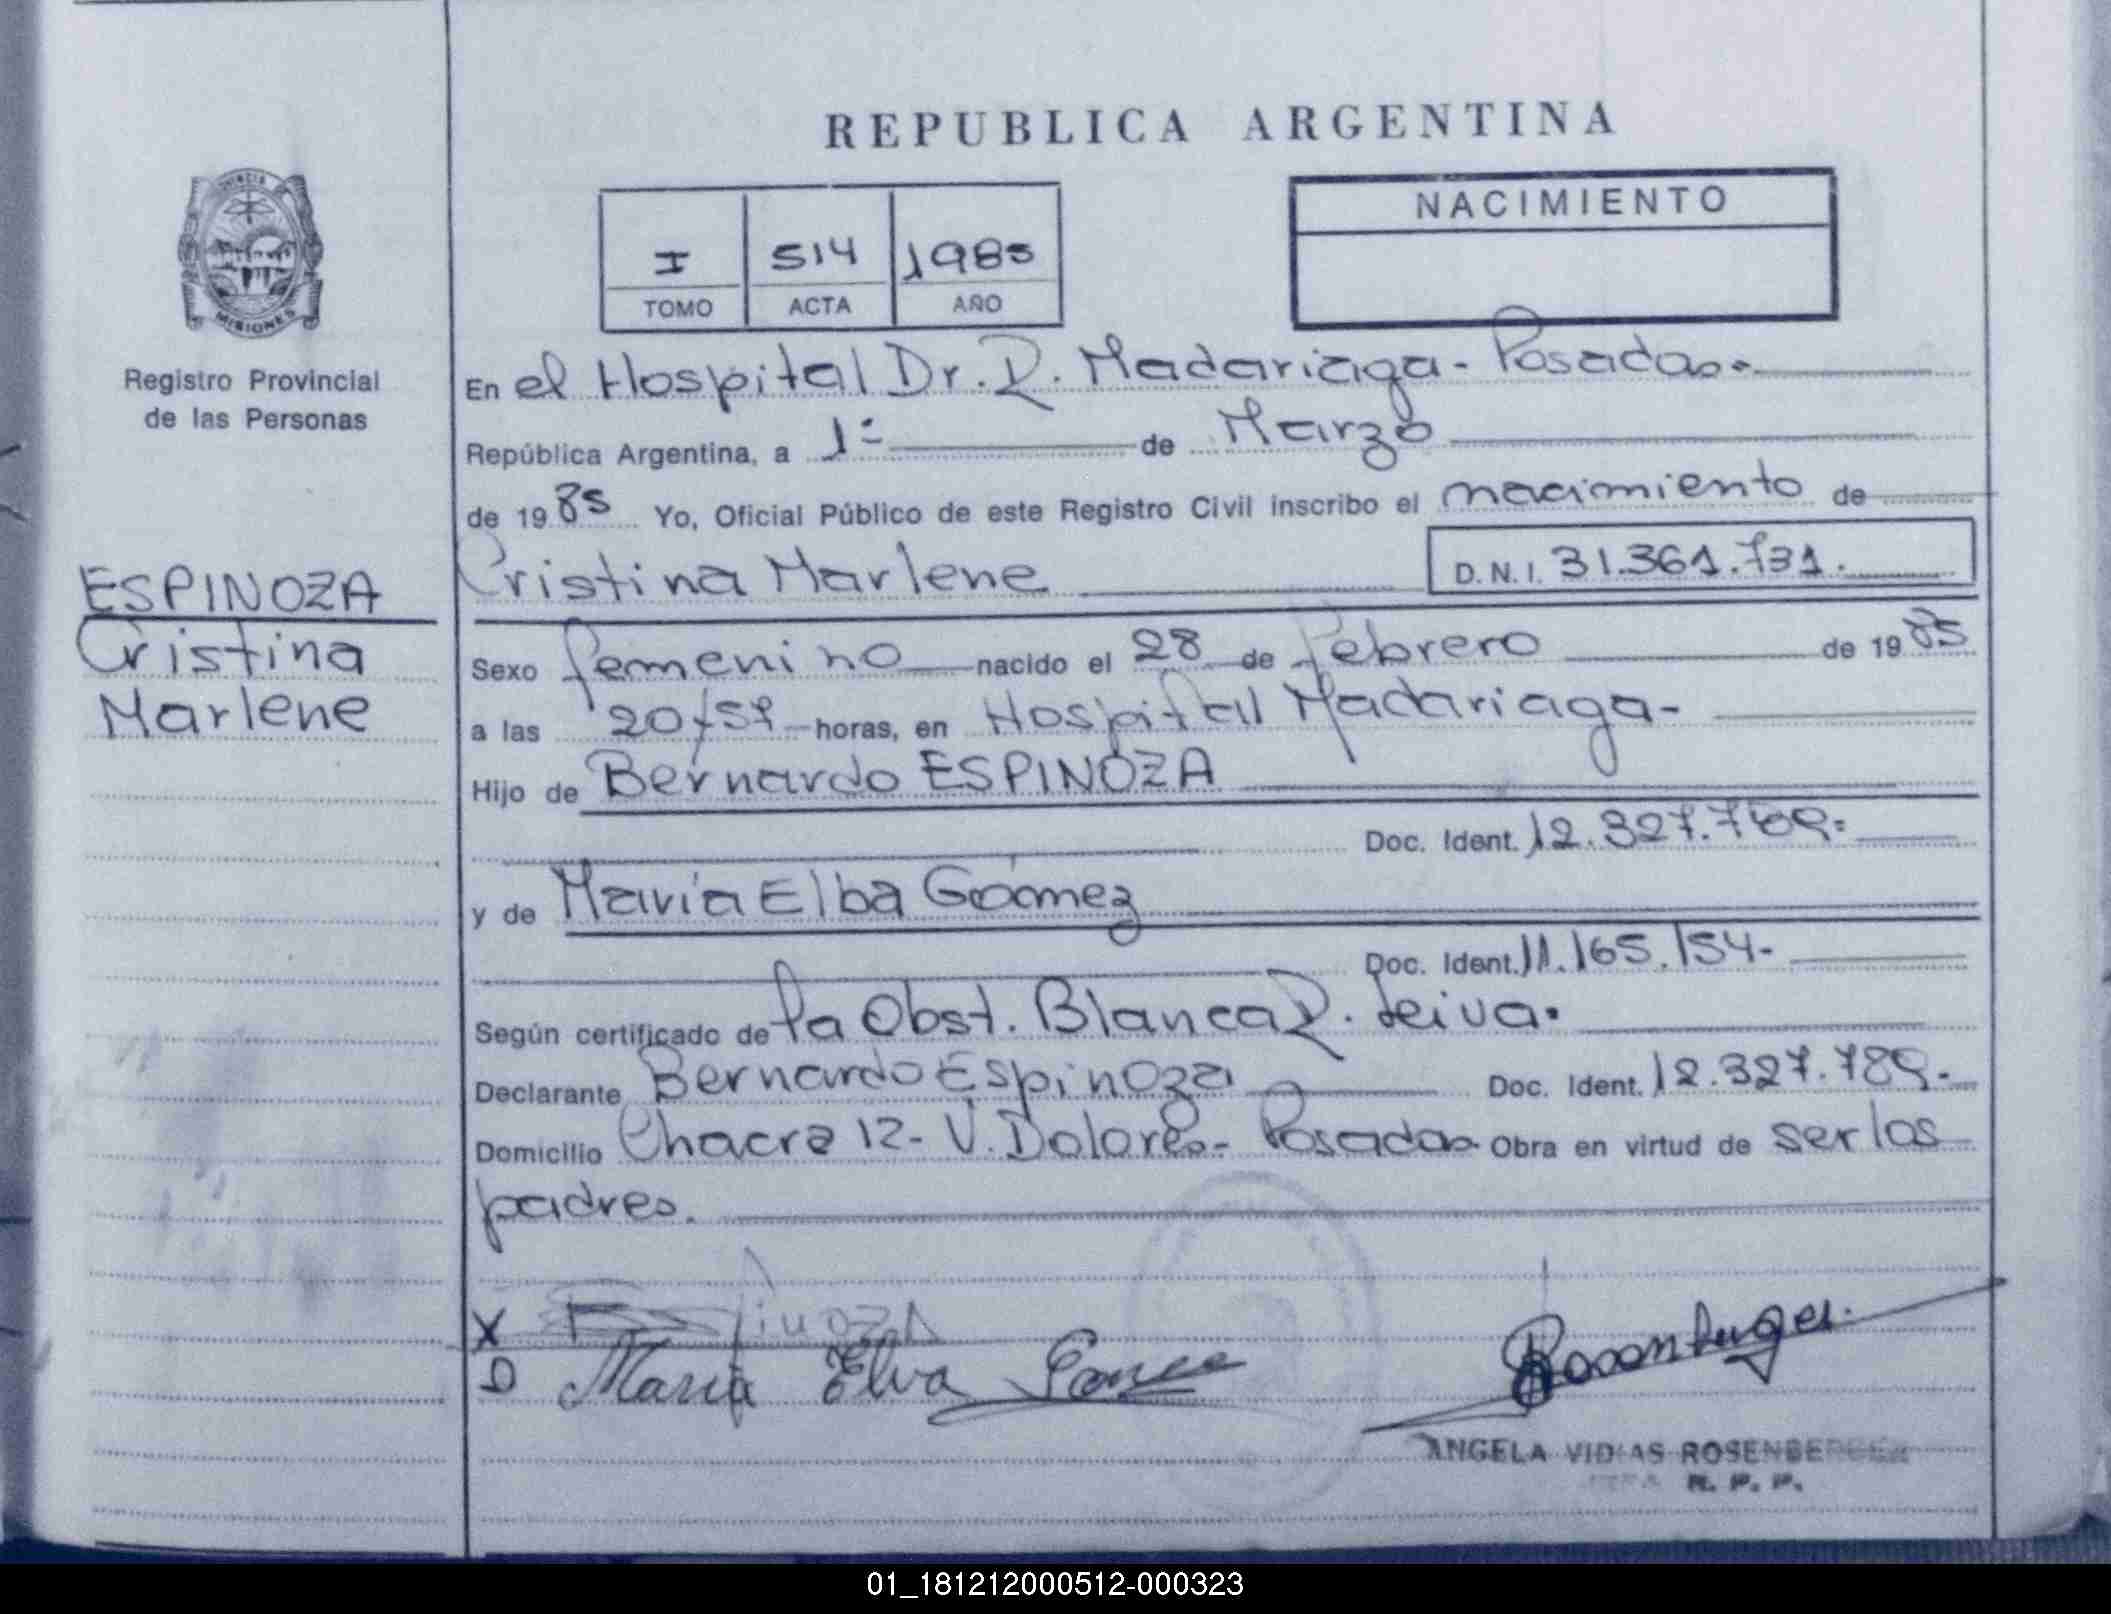 REPUBLICA ARGENTINA
PROVINCIA
MISIONES
Registro Provincial
de las Personas
I 514 1985
TOMO ACTA AÑO
NACIMIENTO
En el Hospital Dr. R. Madariaga - Posadas.
República Argentina, a 1º de Marzo
de 1985 Yo, Oficial Público de este Registro Civil inscribo el nacimiento de
Cristina Marlene D.N.I. 31.361.731.
ESPINOZA
Cristina
Marlene
Sexo femenino nacido el 28 de febrero de 1985
a las 20/ horas, en Hospital Madariaga -
Hijo de Bernardo ESPINOZA
Doc. Ident. 12.327.789.
y de María Elba Gómez
Doc. Ident. 11.165.154-
Según certificado de la Obst. Blanca R. Leiva.
Declarante Bernardo Espinoza Doc. Ident. 12.327.789.
Domicilio Chacra 12 - V. Dolores - Posadas Obra en virtud de ser los
padres.
X
D Maria Elva
ANGELA VIDIAS ROSENBERGER
R. P. P.
01_181212000512-000323